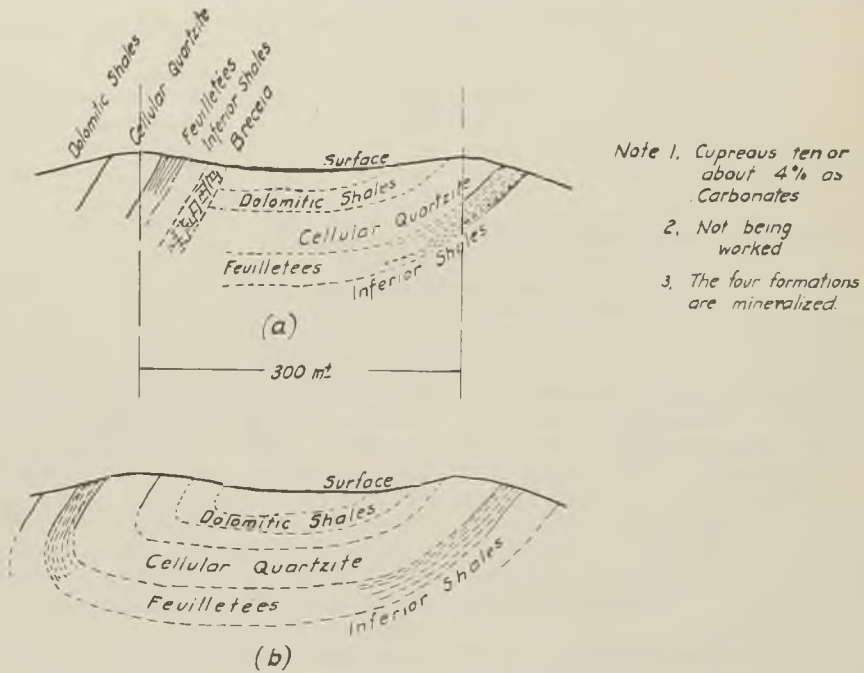 Dolomitic Shales
Cellular Quartzite
Feuilletées
Inferior Shales
Breccia
Surface
Dolomitic Shales
Cellular Quartzite
Feuilletees
Inferior Shales
(a)
300 m±
Note 1. Cupreous tenor
about 4% as
Carbonates
2. Not being
worked
3. The four formations
are mineralized.
Surface
Dolomitic Shales
Cellular Quartzite
Feuilletees
Inferior Shales
(b)